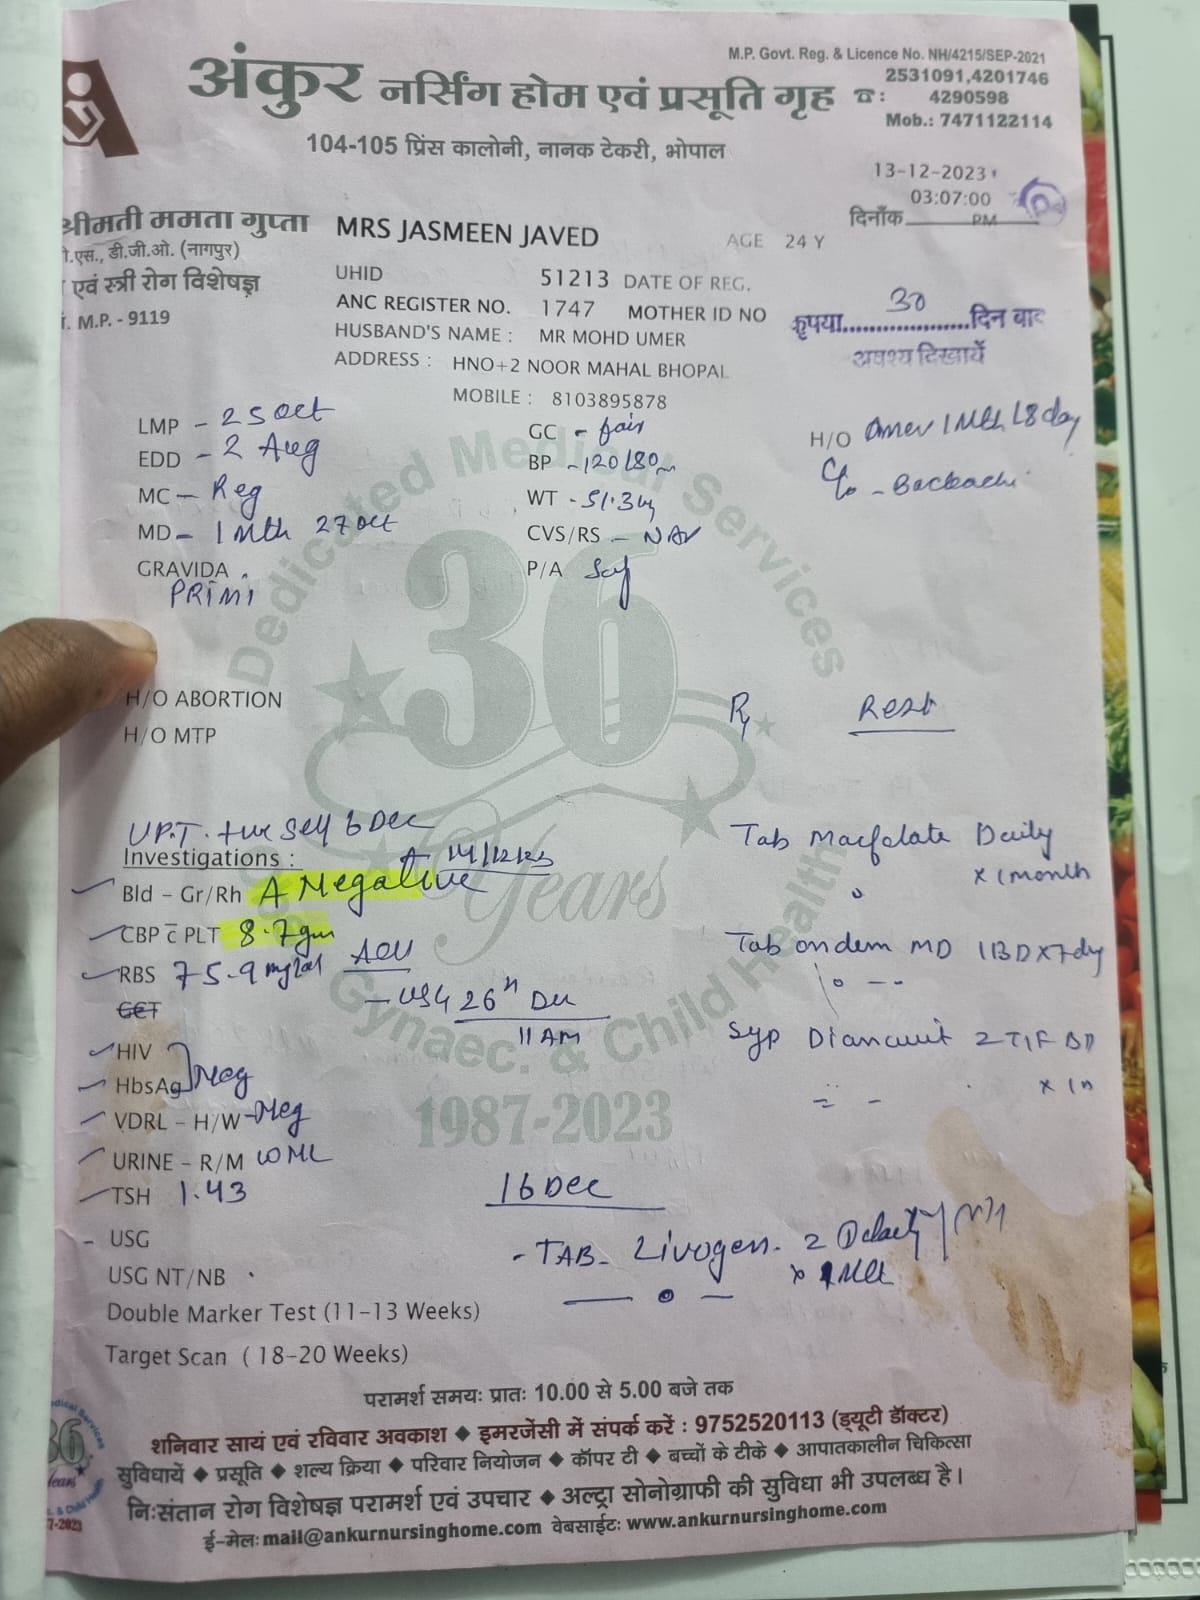 M.P. Govt. Reg. & Licence No. NH/4215/SEP-2021
अंकुर नर्सिंग होम एवं प्रसूति गृह
☎: 2531091,4201746
4290598
Mob.: 7471122114
104-105 प्रिंस कालोनी, नानक टेकरी, भोपाल
13-12-2023
03:07:00
दिनाँक PM
श्रीमती ममता गुप्ता
डी.जी.ओ. (नागपुर)
एवं स्त्री रोग विशेषज्ञ
M.P. - 9119
MRS JASMEEN JAVED
AGE 24 Y
UHID 51213 DATE OF REG.
ANC REGISTER NO. 1747 MOTHER ID NO
HUSBAND'S NAME : MR MOHD UMER
ADDRESS : HNO+2 NOOR MAHAL BHOPAL
MOBILE : 8103895878
कृपया 30 दिन बाद
अवश्य दिखायें
LMP - 25 Oct
EDD - 2 Aug
MC - Reg
MD - 1 Mth 27 Oct
GRAVIDA
PRIMI
GC - fair
BP - 120/80
WT - 51.3 kg
CVS/RS - NAD
P/A Soft
H/O Amen 1 Mth 18 day
C/o - Backache
H/O ABORTION
H/O MTP
Rx Rest
UPT +ve Self 6 Dec
Investigations : 14/12/23
Bld - Gr/Rh A Negative
CBP c̄ PLT 8.7 gm
RBS 75.9 mg/dl
GCT
- USG 26th Dec
11 AM
HIV
HbsAg Neg
VDRL - H/W - Neg
URINE - R/M WNL
TSH 1.43
USG
USG NT/NB
Double Marker Test (11-13 Weeks)
Target Scan ( 18-20 Weeks)
Tab Macfolate Daily
x 1 month
Tab ondem MD 1 BD x 7 day
Syp 2 TSF BD
16 Dec
- TAB- Livogen. 2 Daily
x 1 Mth
36 Years
Dedicated Medical Services
Gynaec. & Child Health
1987-2023
परामर्श समयः प्रातः 10.00 से 5.00 बजे तक
शनिवार सायं एवं रविवार अवकाश ◆ इमरजेंसी में संपर्क करें : 9752520113 (ड्यूटी डॉक्टर)
सुविधायें ◆ प्रसूति ◆ शल्य क्रिया ◆ परिवार नियोजन ◆ कॉपर टी ◆ बच्चों के टीके ◆ आपातकालीन चिकित्सा
निःसंतान रोग विशेषज्ञ परामर्श एवं उपचार ◆ अल्ट्रा सोनोग्राफी की सुविधा भी उपलब्ध है।
ई-मेलः mail@ankurnursinghome.com वेबसाईटः www.ankurnursinghome.com